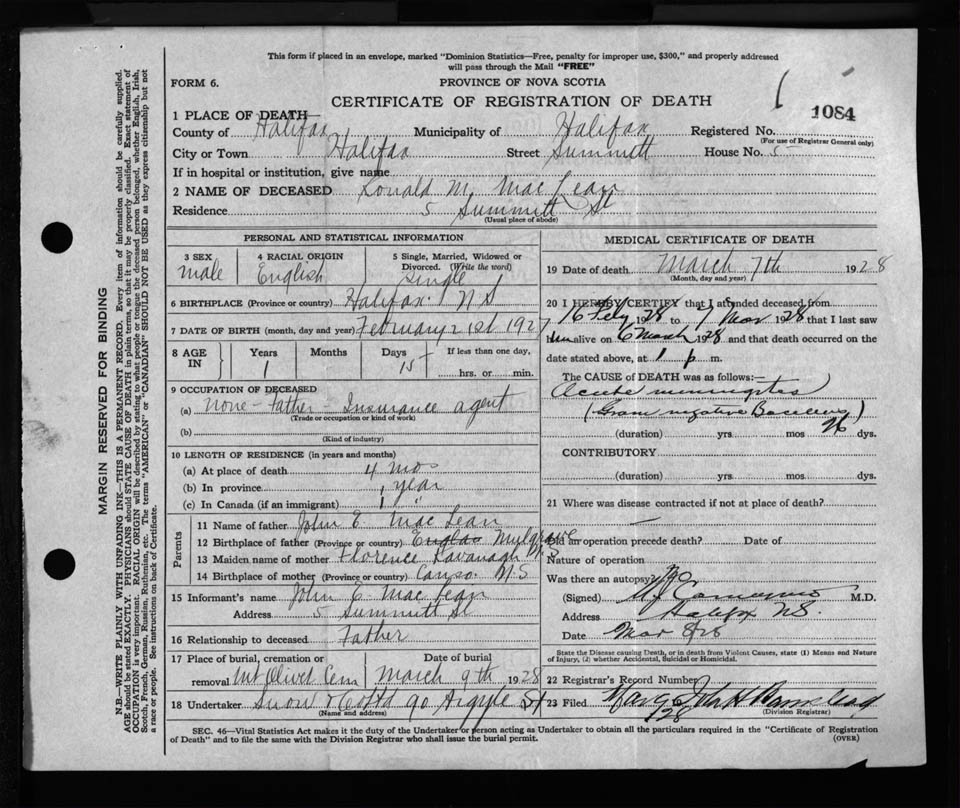 This form if placed in an envelope, marked "Dominion Statistics—Free, penalty for improper use, $300," and properly addressed
will pass through the Mail "FREE"
FORM 6.
PROVINCE OF NOVA SCOTIA
CERTIFICATE OF REGISTRATION OF DEATH
1084
1 PLACE OF DEATH
County of Halifax Municipality of Halifax Registered No.
(For use of Registrar General only)
City or Town Halifax Street Summitt House No. 5
If in hospital or institution, give name
2 NAME OF DECEASED Ronald M. MacLean
Residence 5 Summitt St
(Usual place of abode)
PERSONAL AND STATISTICAL INFORMATION
3 SEX 4 RACIAL ORIGIN 5 Single, Married, Widowed or
Divorced. (Write the word)
male English Single
6 BIRTHPLACE (Province or country) Halifax N S
7 DATE OF BIRTH (month, day and year) February 21st 1927
8 AGE IN Years Months Days If less than one day,
1 15 hrs. or min.
9 OCCUPATION OF DECEASED
(a) none - Father - Insurance agent
(Trade or occupation or kind of work)
(b)
(Kind of industry)
10 LENGTH OF RESIDENCE (in years and months)
(a) At place of death 4 mos
(b) In province 1 year
(c) In Canada (if an immigrant) 1 "
Parents
11 Name of father John E. MacLean
12 Birthplace of father (Province or country) Mulgrave N S
13 Maiden name of mother Florence Kavanagh
14 Birthplace of mother (Province or country) Canso N.S
15 Informant's name John E. MacLean
Address 5 Summitt St
16 Relationship to deceased Father
17 Place of burial, cremation or Date of burial
removal Mt Olivet Cem March 9th 1928
18 Undertaker Snow & 90 Argyle St
(Name and address)
MEDICAL CERTIFICATE OF DEATH
19 Date of death March 7th 1928
(Month, day and year)
20 I HEREBY CERTIFY that I attended deceased from
16 Feby 1928 to 7 Mar 1928 that I last saw
him alive on 6 March 1928 and that death occurred on the
date stated above, at 1 p m.
The CAUSE of DEATH was as follows:—
Acute meningitis
(Gram negative Bacillus)
(duration) yrs. mos 26 dys.
CONTRIBUTORY
(duration) yrs. mos. dys.
21 Where was disease contracted if not at place of death?
Did an operation precede death? Date of
Nature of operation
Was there an autopsy? No
(Signed) M.D.
Address Halifax NS.
Date Mar 8/28
State the Disease causing Death, or in death from Violent Causes, state (1) Means and Nature
of Injury, (2) whether Accidental, Suicidal or Homicidal.
22 Registrar's Record Number
23 Filed Mar 9 John H
128
(Division Registrar)
SEC. 46—Vital Statistics Act makes it the duty of the Undertaker or person acting as Undertaker to obtain all the particulars required in the "Certificate of Registration
of Death" and to file the same with the Division Registrar who shall issue the burial permit.
(OVER)
MARGIN RESERVED FOR BINDING
N.B.—WRITE PLAINLY WITH UNFADING INK—THIS IS A PERMANENT RECORD. Every item of information should be carefully supplied.
AGE should be stated EXACTLY. PHYSICIANS should STATE CAUSE OF DEATH in plain terms, so that it may be properly classified. Exact statement of
OCCUPATION is very important. RACIAL ORIGIN will be described by stating to what people or tongue the deceased person belonged, whether English, Irish,
Scotch, French, German, Russian, Ruthenian, etc. The terms "AMERICAN" or "CANADIAN" SHOULD NOT BE USED as they express citizenship but not
a race or people. See instructions on back of Certificate.